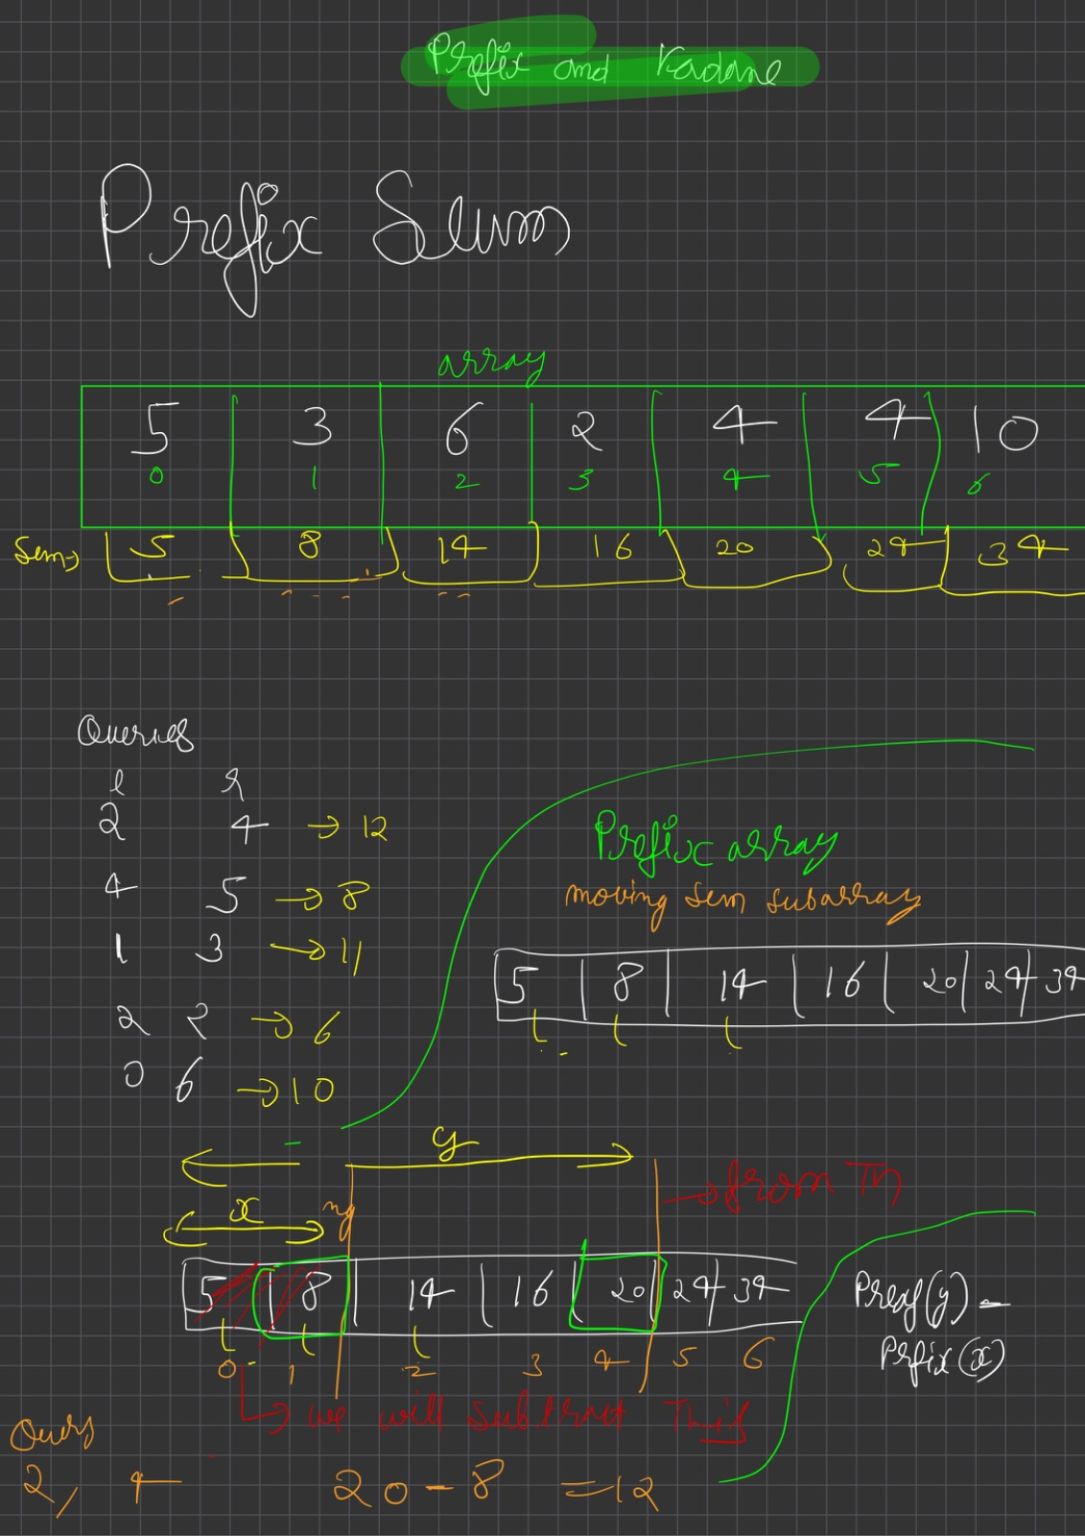 Prefix and Kadane
Prefix Sum
array
5 3 6 2 4 4 10
0 1 2 3 4 5 6
Sum→ 5 8 14 16 20 24 34
Queries
l r
2 4 → 12
4 5 → 8
1 3 → 11
2 2 → 6
0 6 → 10
Prefix array
moving sum subarray
5 8 14 16 20 24 34
y
→ from
x
5 8 14 16 20 24 34
0 1 2 3 4 5 6
Pref(y) -
Prfix(x)
→ we will subtract This
Query
2, 4 20 - 8 = 12